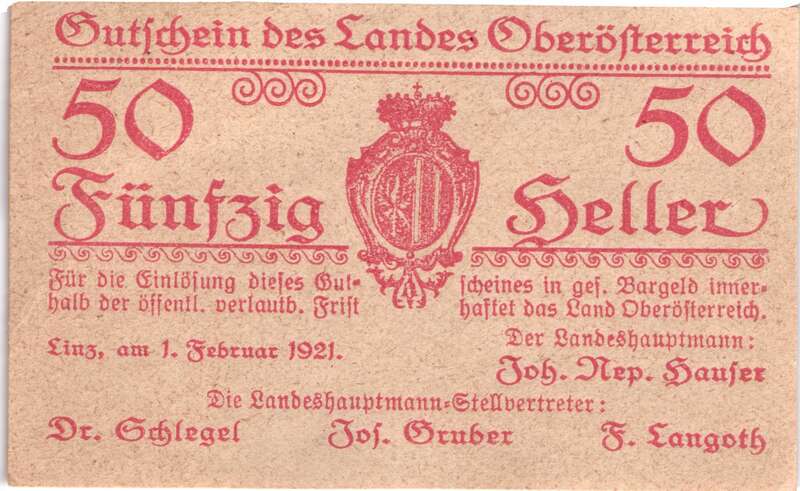 Gutschein des Landes Oberösterreich
50 50
Fünfzig Heller
Für die Einlösung dieses Gut= scheines in ges. Bargeld inner=
halb der öffentl. verlautb. Frist haftet das Land Oberösterreich.
Linz, am 1. Februar 1921. Der Landeshauptmann:
Joh. Nep. Hauser
Die Landeshauptmann=Stellvertreter:
Dr. Schlegel Jos. Gruber F. Langoth